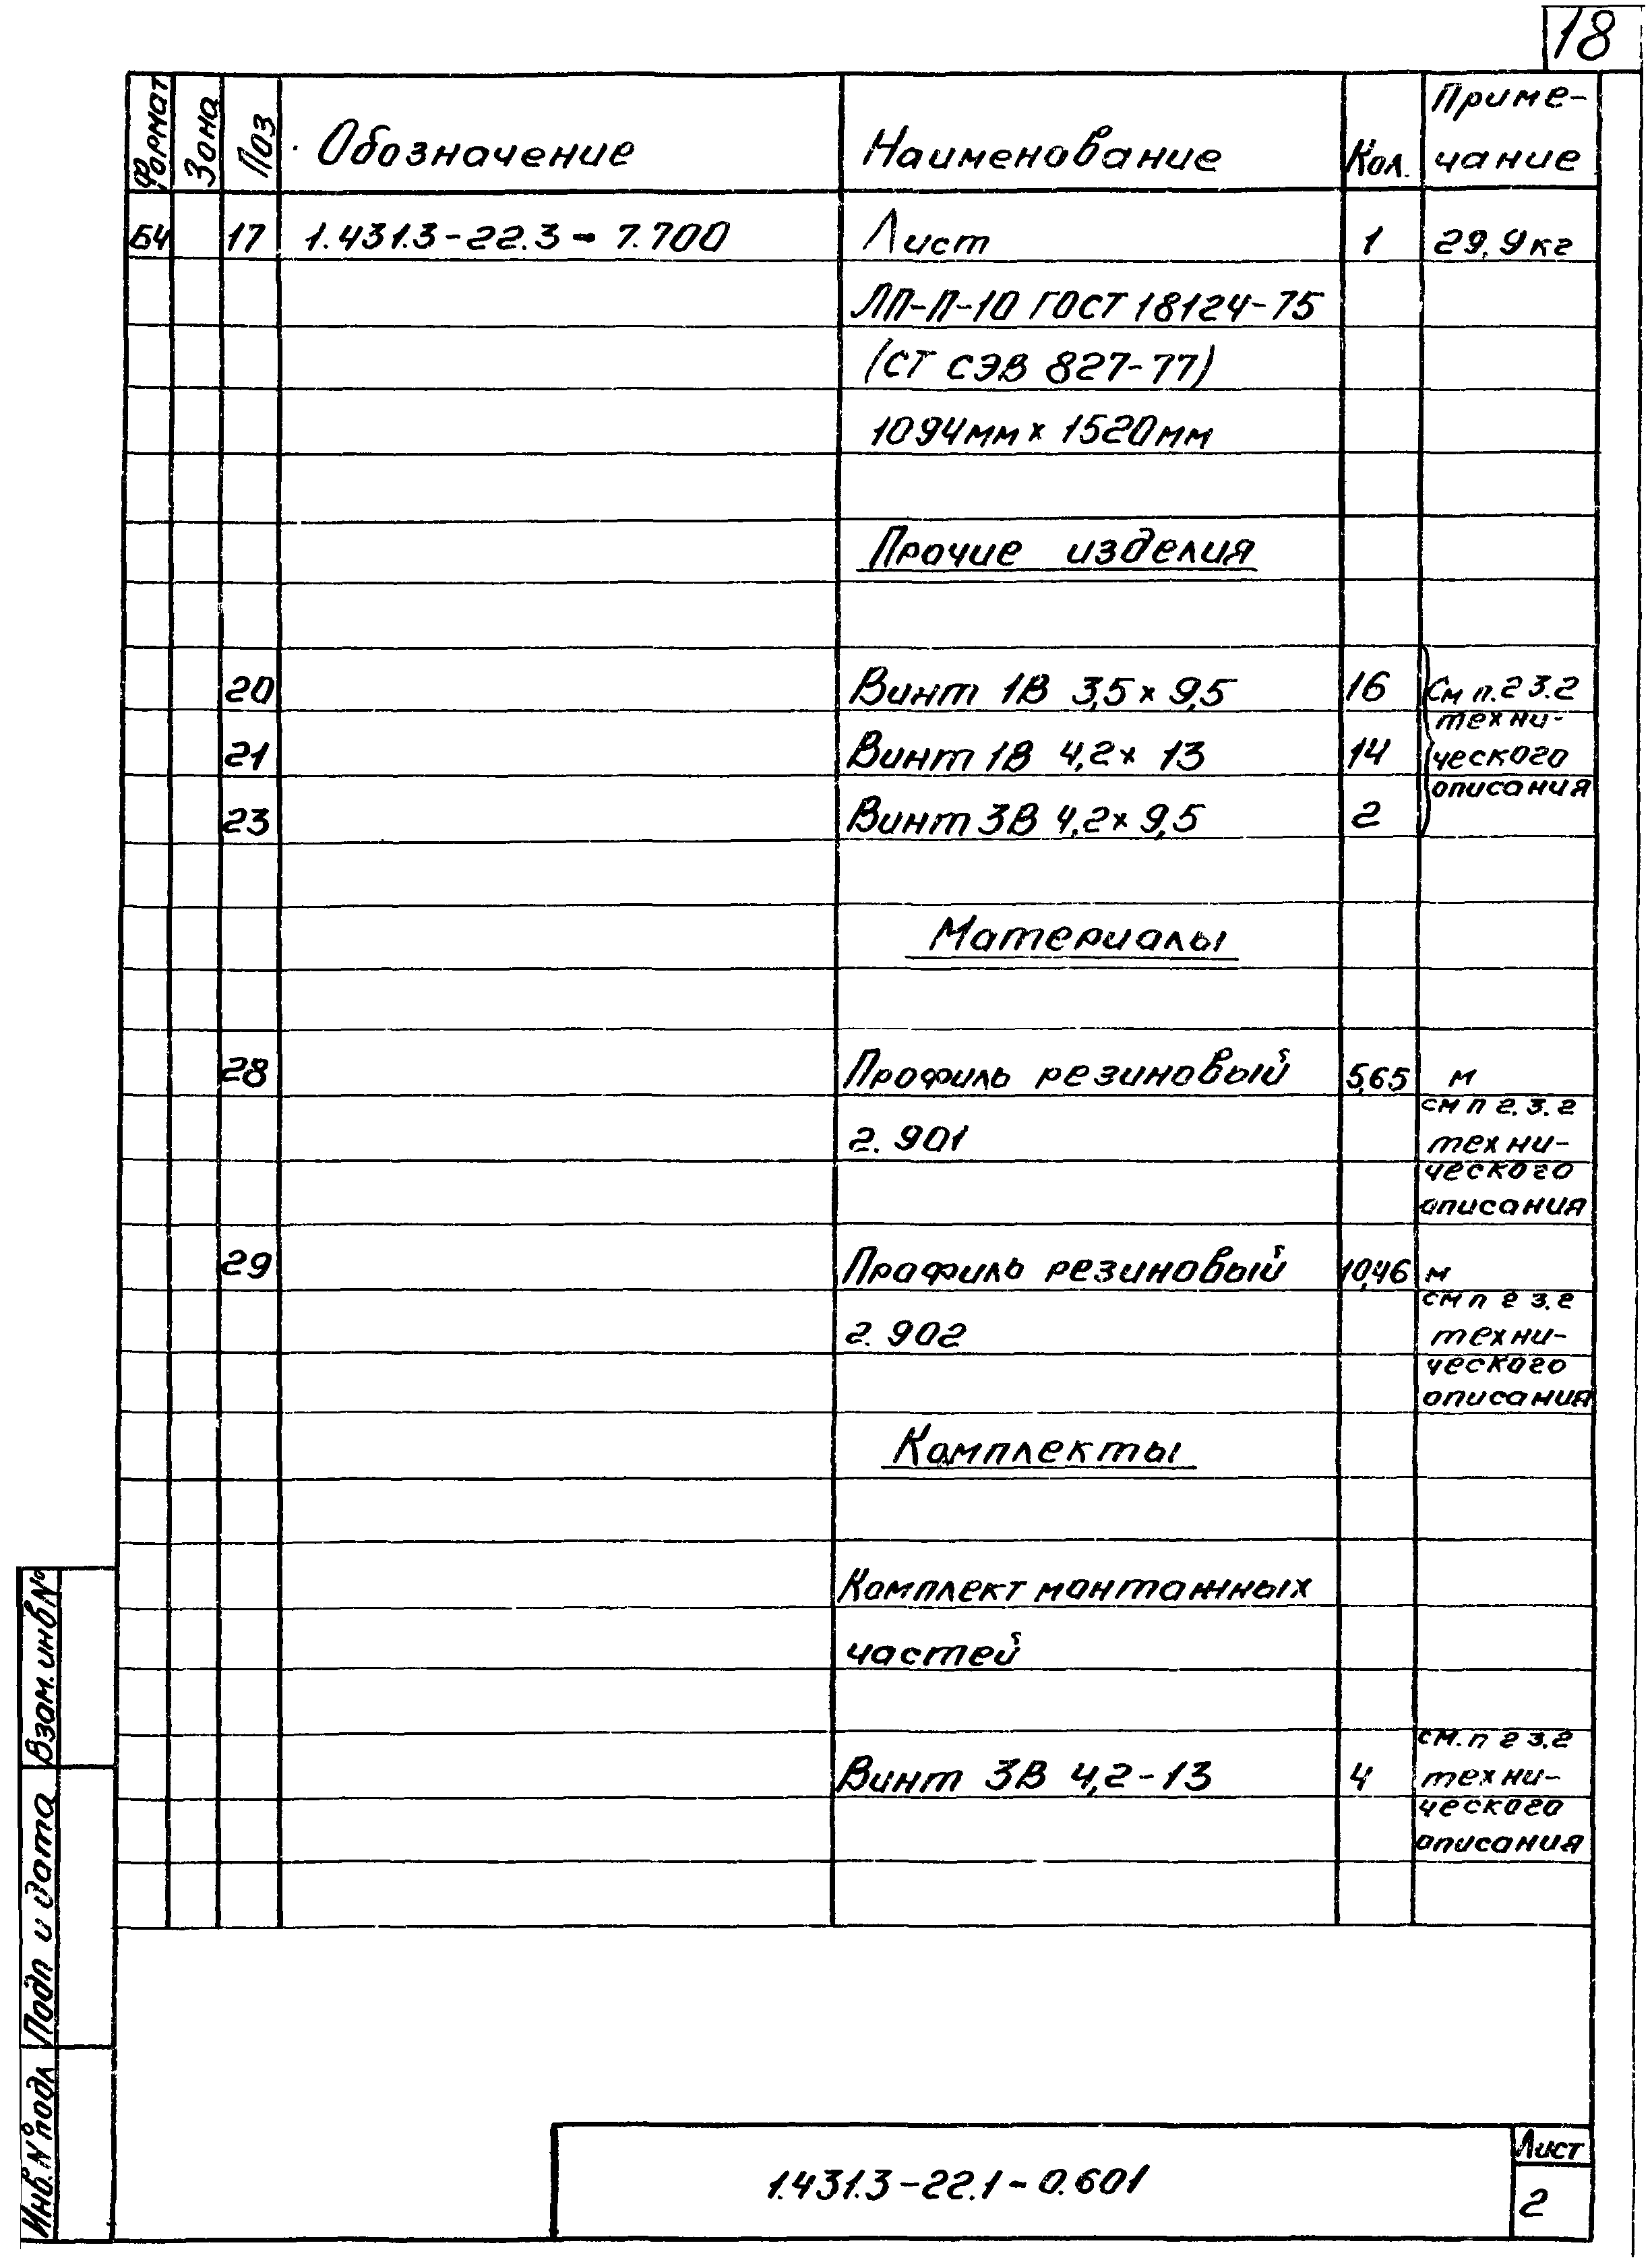 18
Формат Зона Поз Обозначение Наименование Кол. Приме-
чание
Б4 17 1.431.3-22.3-7.700 Лист 1 29,9кг
ЛП-П-10 ГОСТ 18124-75
(СТ СЭВ 827-77)
1094мм х 1520мм
Прочие изделия
20 Винт 1В 3,5 х 9,5 16 См п.2 3.2
техни-
21 Винт 1В 4,2х 13 14 ческого
описания
23 Винт 3В 4,2х 9,5 2
Материалы
28 Профиль резиновый 5,65 м
см п 2.3.2
г. 901 техни-
ческого
описания
29 Профиль резиновый 10,46 м
см п 2 3.2
г. 902 техни-
ческого
описания
Комплекты
Комплект монтажных
частей
см. п 2 3.2
Винт 3В 4,2-13 4 техни-
ческого
описания
Взам. инв №
Подп и дата
Инв. № подл
1.431.3-22.1-0.601
Лист
2